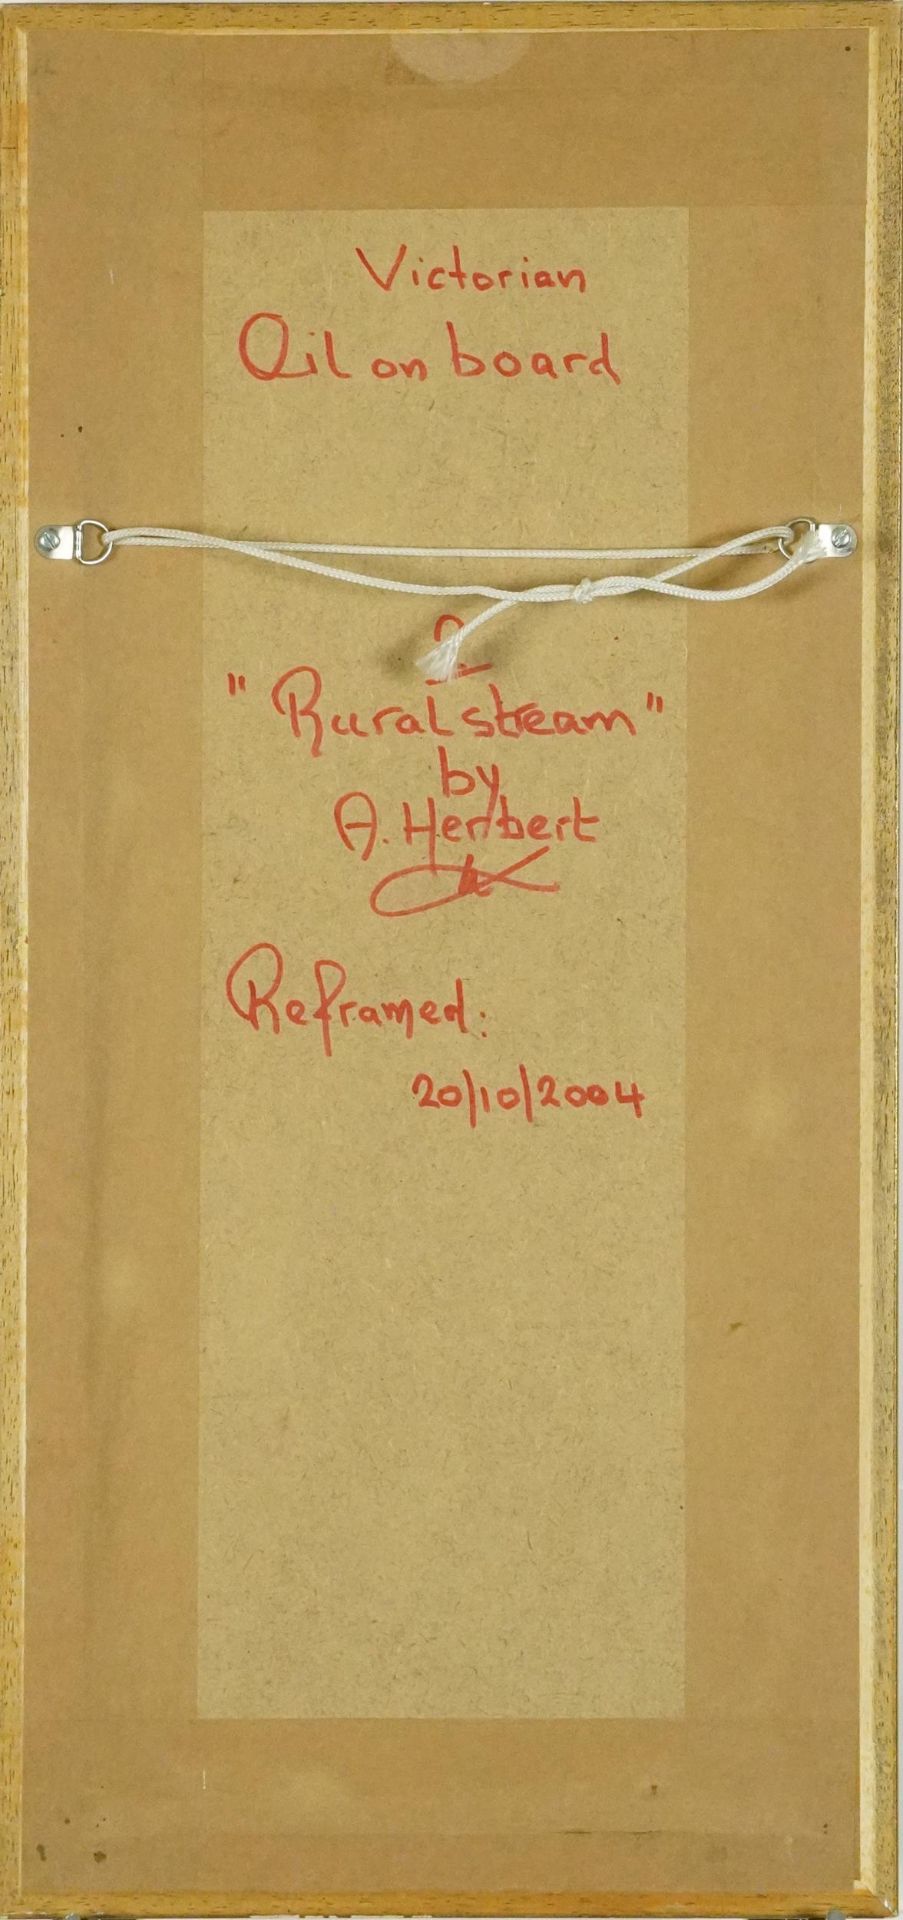 Victorian
Oil on board
2
"Rural stream"
by
A. Herbert
Reframed:
20/10/2004